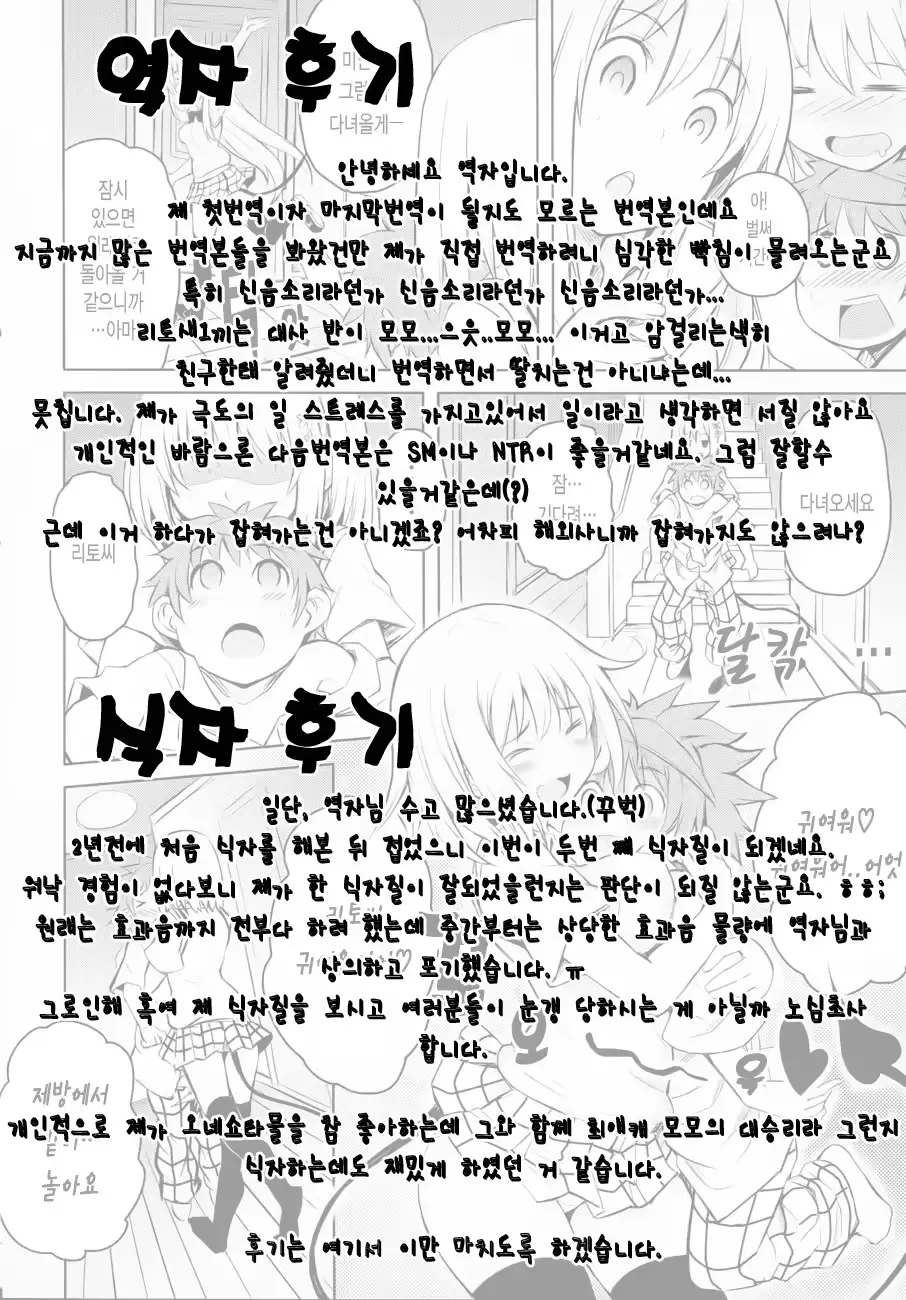 역자 후기
안녕하세요 역자입니다.
제 첫번역이자 마지막번역이 될지도 모르는 번역본인데요
지금까지 많은 번역본들을 봐왔건만 제가 직접 번역하려니 심각한 빡침이 몰려오는군요
특히 신음소리라던가 신음소리라던가 신음소리라던가...
리토새1끼는 대사 반이 모모...으읏..모모... 이거고 암걸리는색히
친구한태 알려줬더니 번역하면서 딸치는건 아니냐는데...
못칩니다. 제가 극도의 일 스트레스를 가지고있어서 일이라고 생각하면 서질 않아요
개인적인 바람으론 다음번역본은 SM이나 NTR이 좋을거같네요. 그럼 잘할수
있을거같은데(?)
근데 이거 하다가 잡혀가는건 아니겠죠? 어차피 해외사니까 잡혀가지도 않으려나?
식자 후기
일단, 역자님 수고 많으셨습니다.(꾸벅)
2년전에 처음 식자를 해본 뒤 접었으니 이번이 두번 째 식자질이 되겠네요.
워낙 경험이 없다보니 제가 한 식자질이 잘되었을런지는 판단이 되질 않는군요. ㅎㅎ;
원래는 효과음까지 전부다 하려 했는데 중간부터는 상당한 효과음 물량에 역자님과
상의하고 포기했습니다. ㅠ
그로인해 혹여 제 식자질을 보시고 여러분들이 눈갱 당하시는 게 아닐까 노심초사
합니다.
개인적으로 제가 오네쇼타물을 참 좋아하는데 그와 함께 최애캐 모모의 대승리라 그런지
식자하는데도 재밌게 하였던 거 같습니다.
후기는 여기서 이만 마치도록 하겠습니다.
다녀올게ー
아!
벌써
잠시
있으면
돌아올 거
같으니까
…아마
리토씨
잠…
기다려…
다녀오세요
달칵
…
귀여워♡
귀여워어..어엇
제방에서
놀아요
오
우